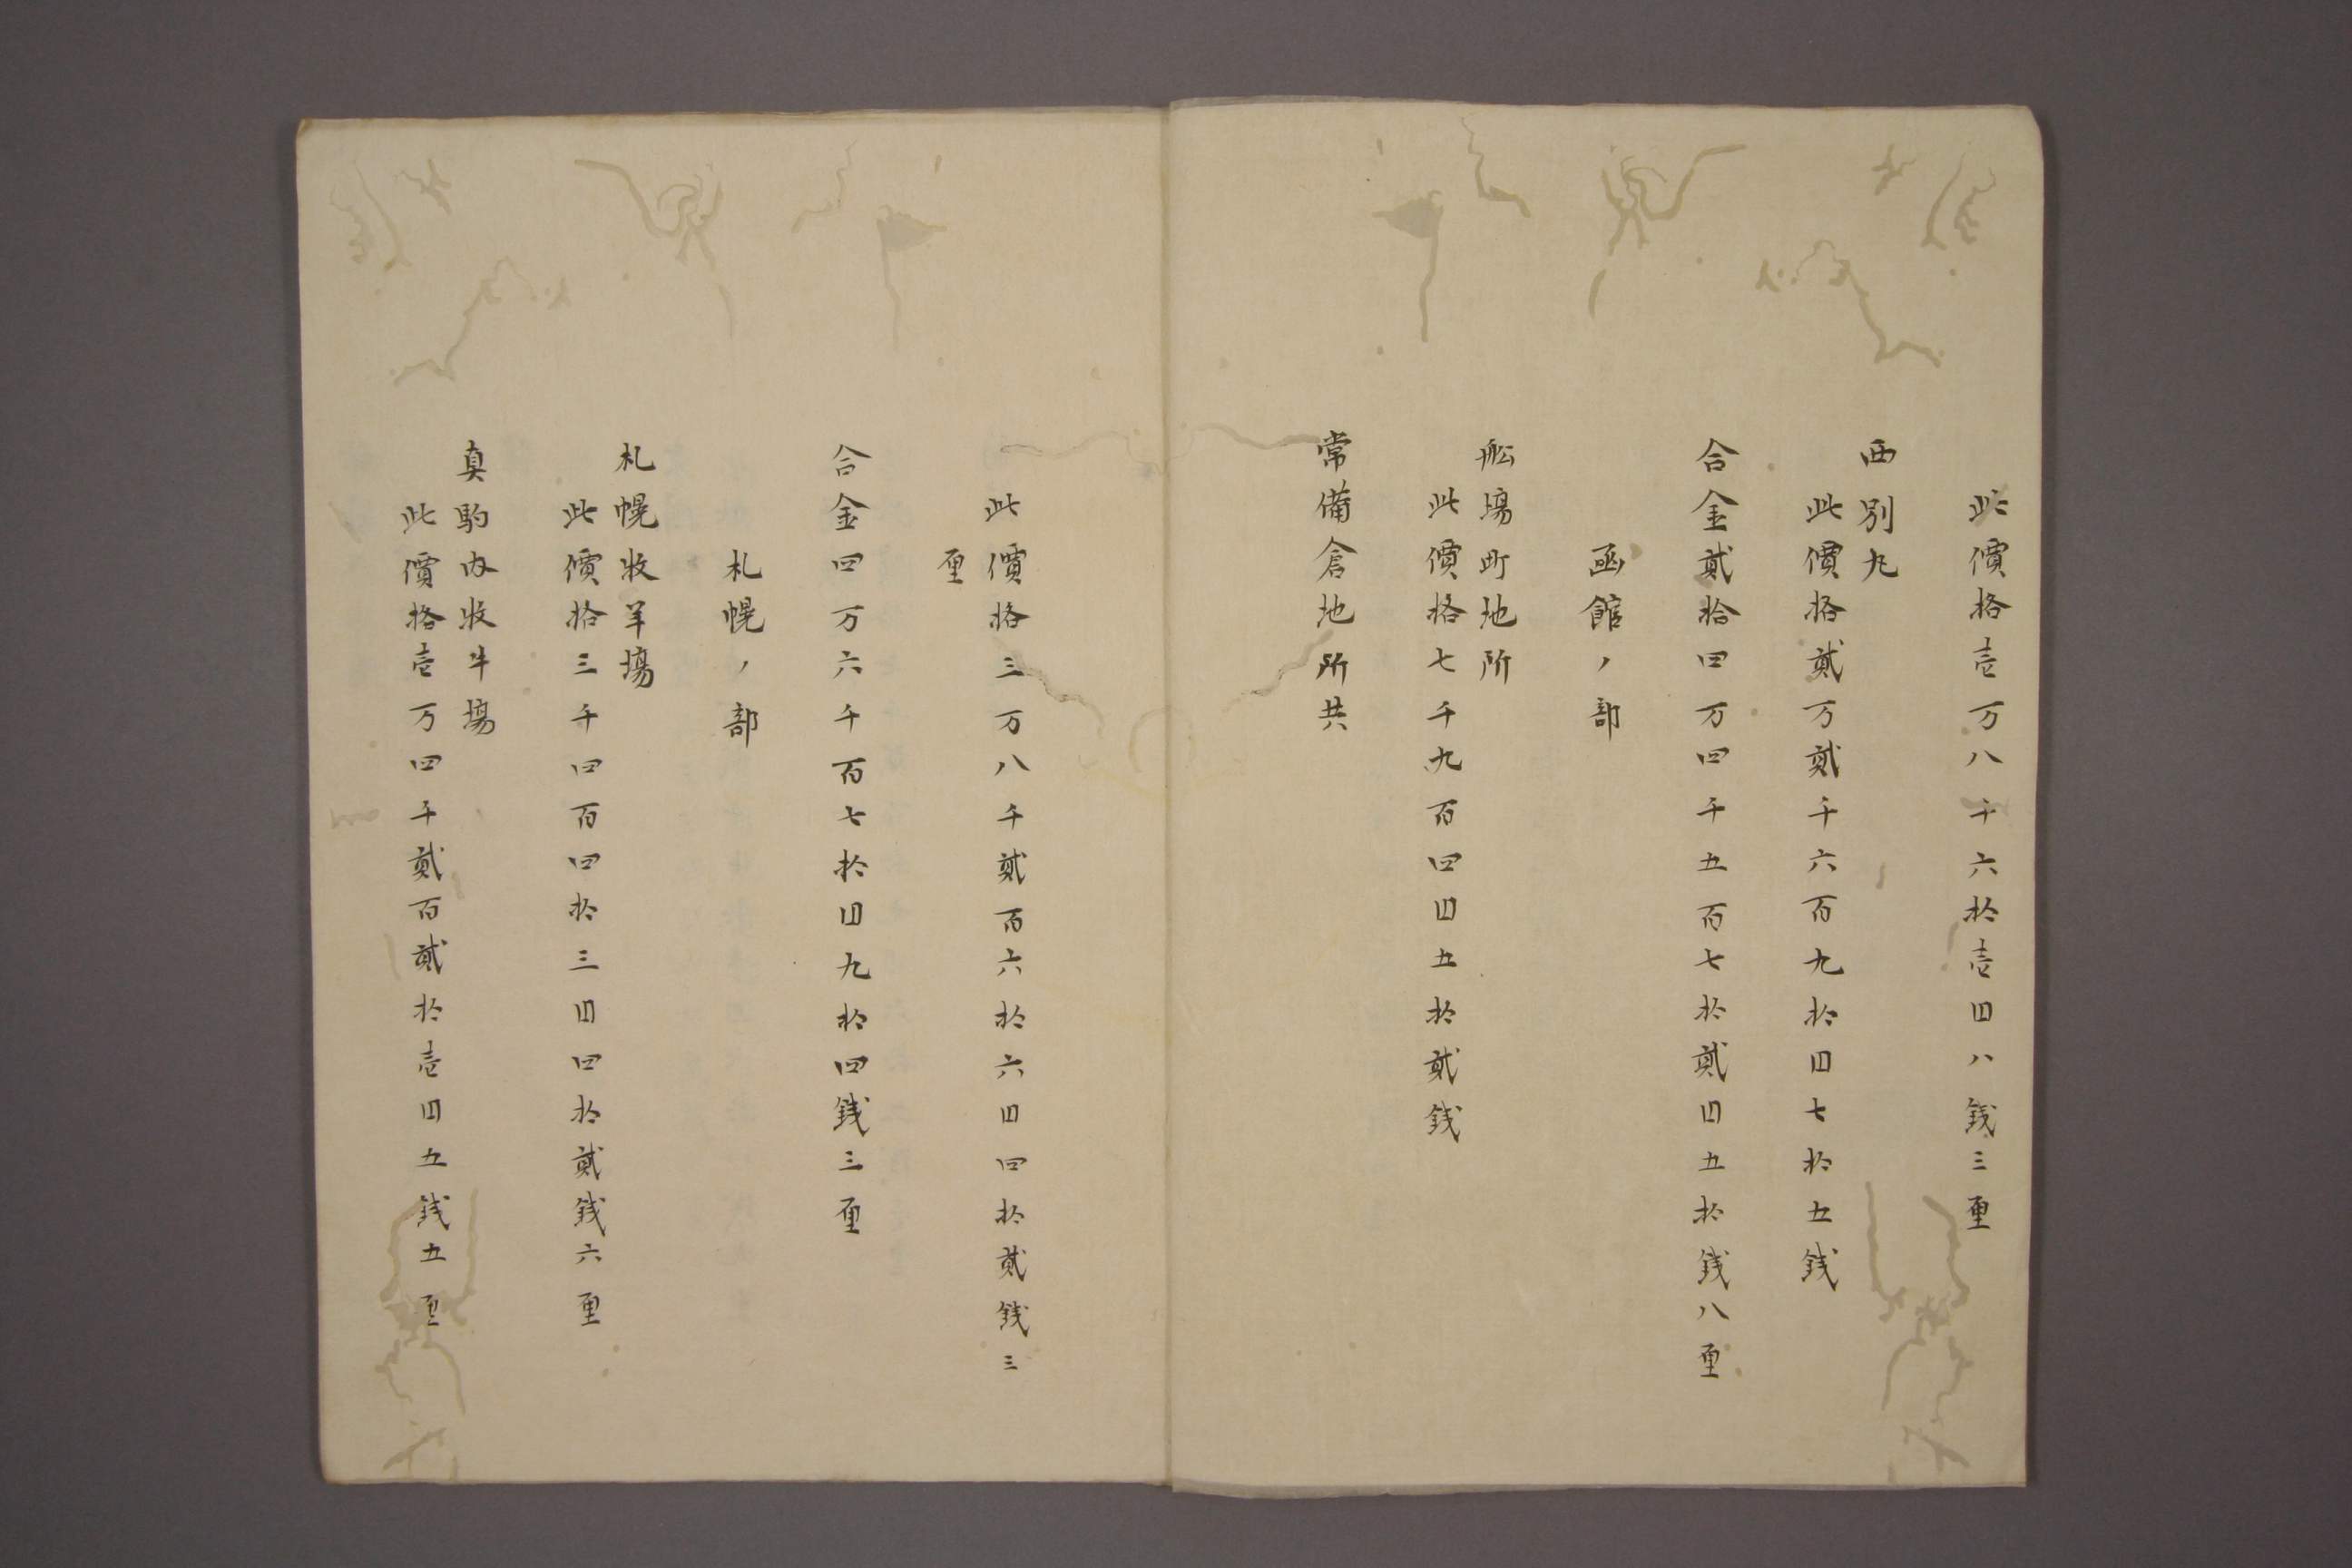 此價格壱万八千六拾壱円八銭三厘
西別丸
此價格貳万貳千六百九拾円七拾五銭
合金貳拾四万四千五百七拾貳円五拾銭八厘
函館ノ部
舩場町地所
此價格七千九百四円五拾貳銭
常備倉地所共
此價格三万八千貳百六拾六円四拾貳銭三
厘
合金四万六千百七拾円九拾四銭三厘
札幌ノ部
札幌牧羊場
此價格三千四百四拾三円四拾貳銭六厘
真駒内牧牛場
此價格壱万四千貳百貳拾壱円五銭五厘